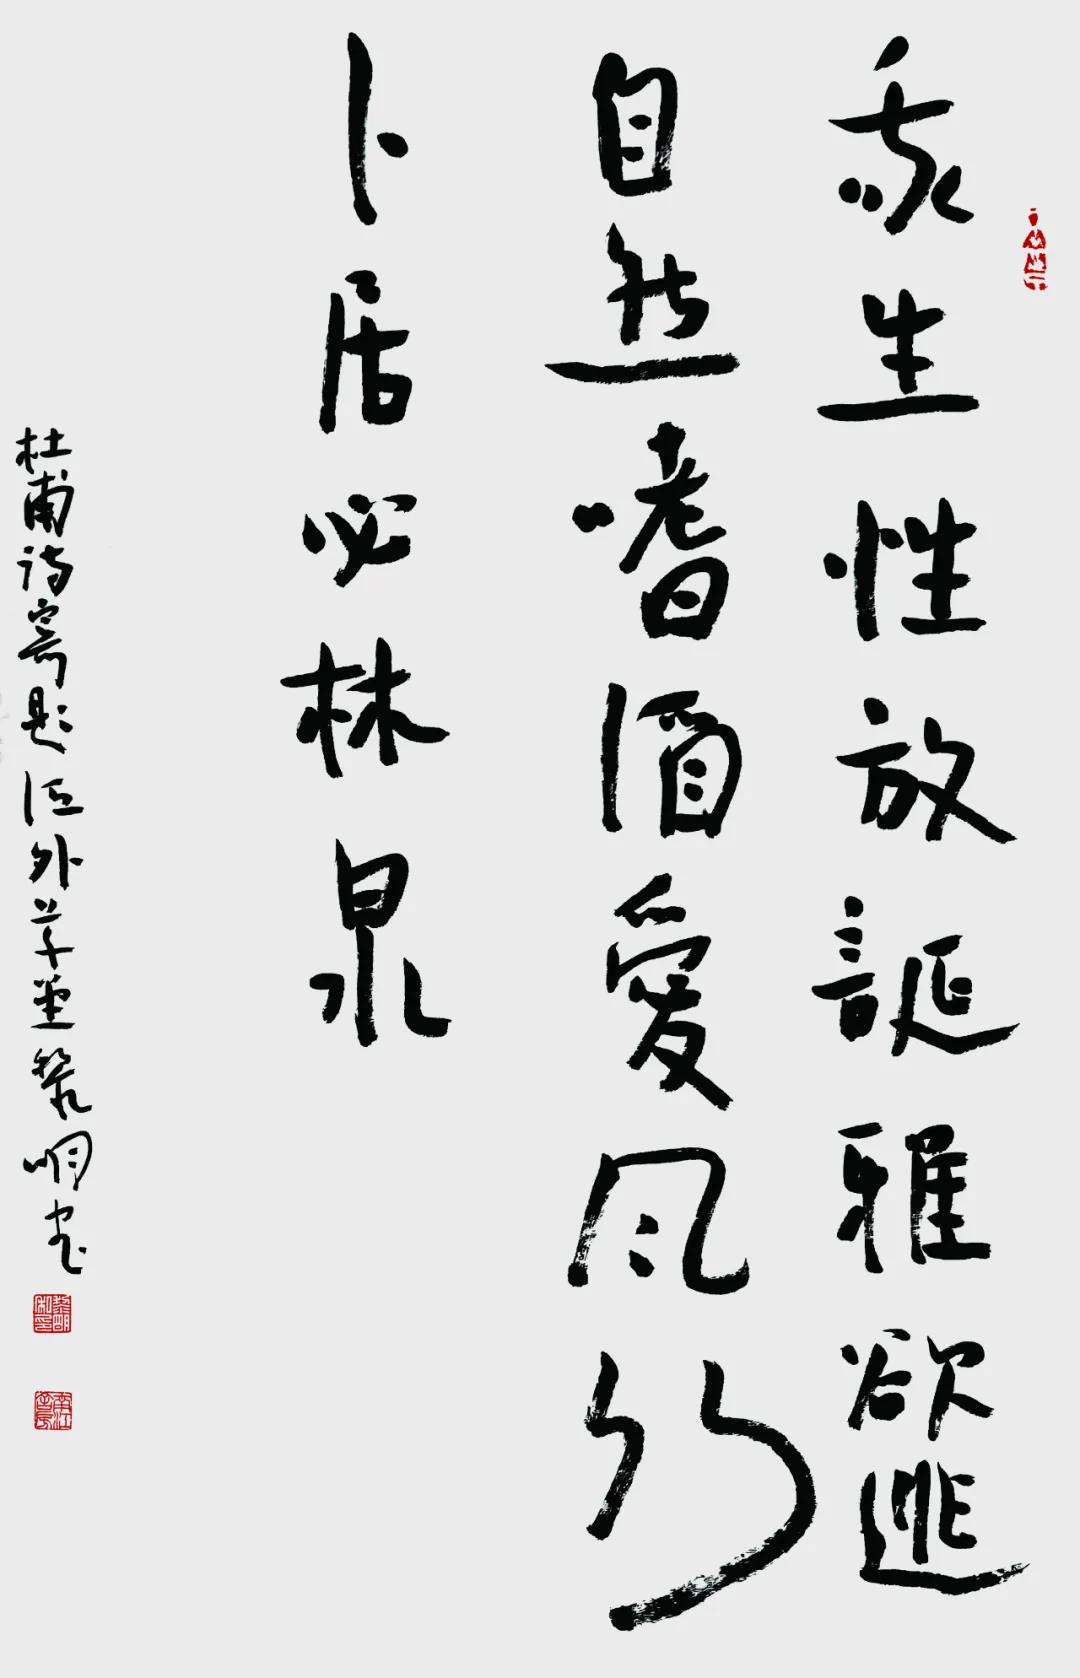 我生性放誕雅欲逃
自然嗜酒愛风竹
卜居必林泉
杜甫诗寄题江外草堂黎明书